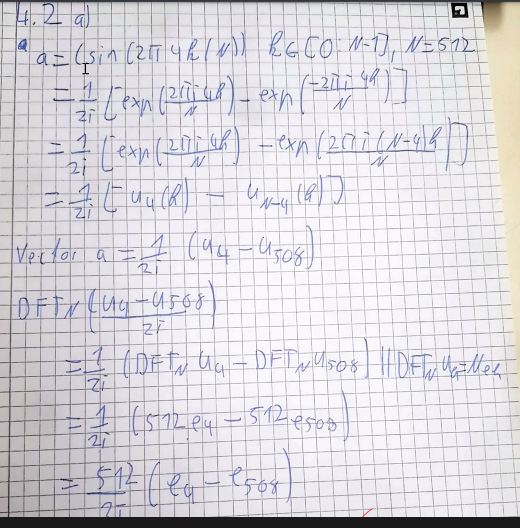 4.2 a)
a = (sin (2πi 4k/N)) k∈[0:N-1], N=512
= 1/2i [exp(2πi4k/N) - exp(-2πi4k/N)]
= 1/2i [exp(2πi4k/N) - exp(2πi(N-4)k/N)]
= 1/2i [u₄(k) - u_N-4(k)]
Vector a = 1/2i (u₄ - u₅₀₈)
DFT_N (u₄-u₅₀₈/2i)
= 1/2i (DFT_N u₄ - DFT_N u₅₀₈) || DFT_N
= 1/2i (512e₄ - 512e₅₀₈)
= 512/2i (e₄ - e₅₀₈)